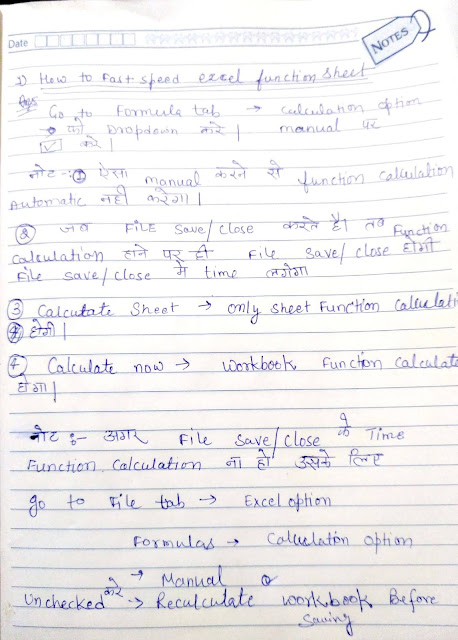 Date
NOTES
1) How to Fast speed excel function sheet
Ans Go to Formula tab → calculation option
→ को Dropdown करे | manual पर
☑ करे |
नोट :- ① ऐसा manual करने से function calculation
Automatic नहीं करेगा |
② जब FILE save/close करते है। तब Function
calculation होने पर ही File save/close होगी
File save/close में time लगेगा
③ Calcutate Sheet → only sheet Function calculati
होगी |
④ Calculate now → workbook Function calculate
होगा |
नोट :- अगर File save/close के Time
Function calculation ना हो उसके लिए
go to File tab → Excel option
Formulas → Calculation option
→ Manual
Unchecked करे → Recalculate workbook Before
saving